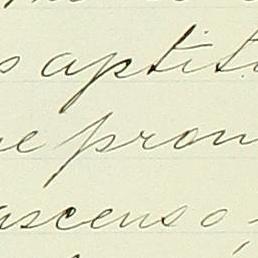 s aptit
e pron
ascenso,